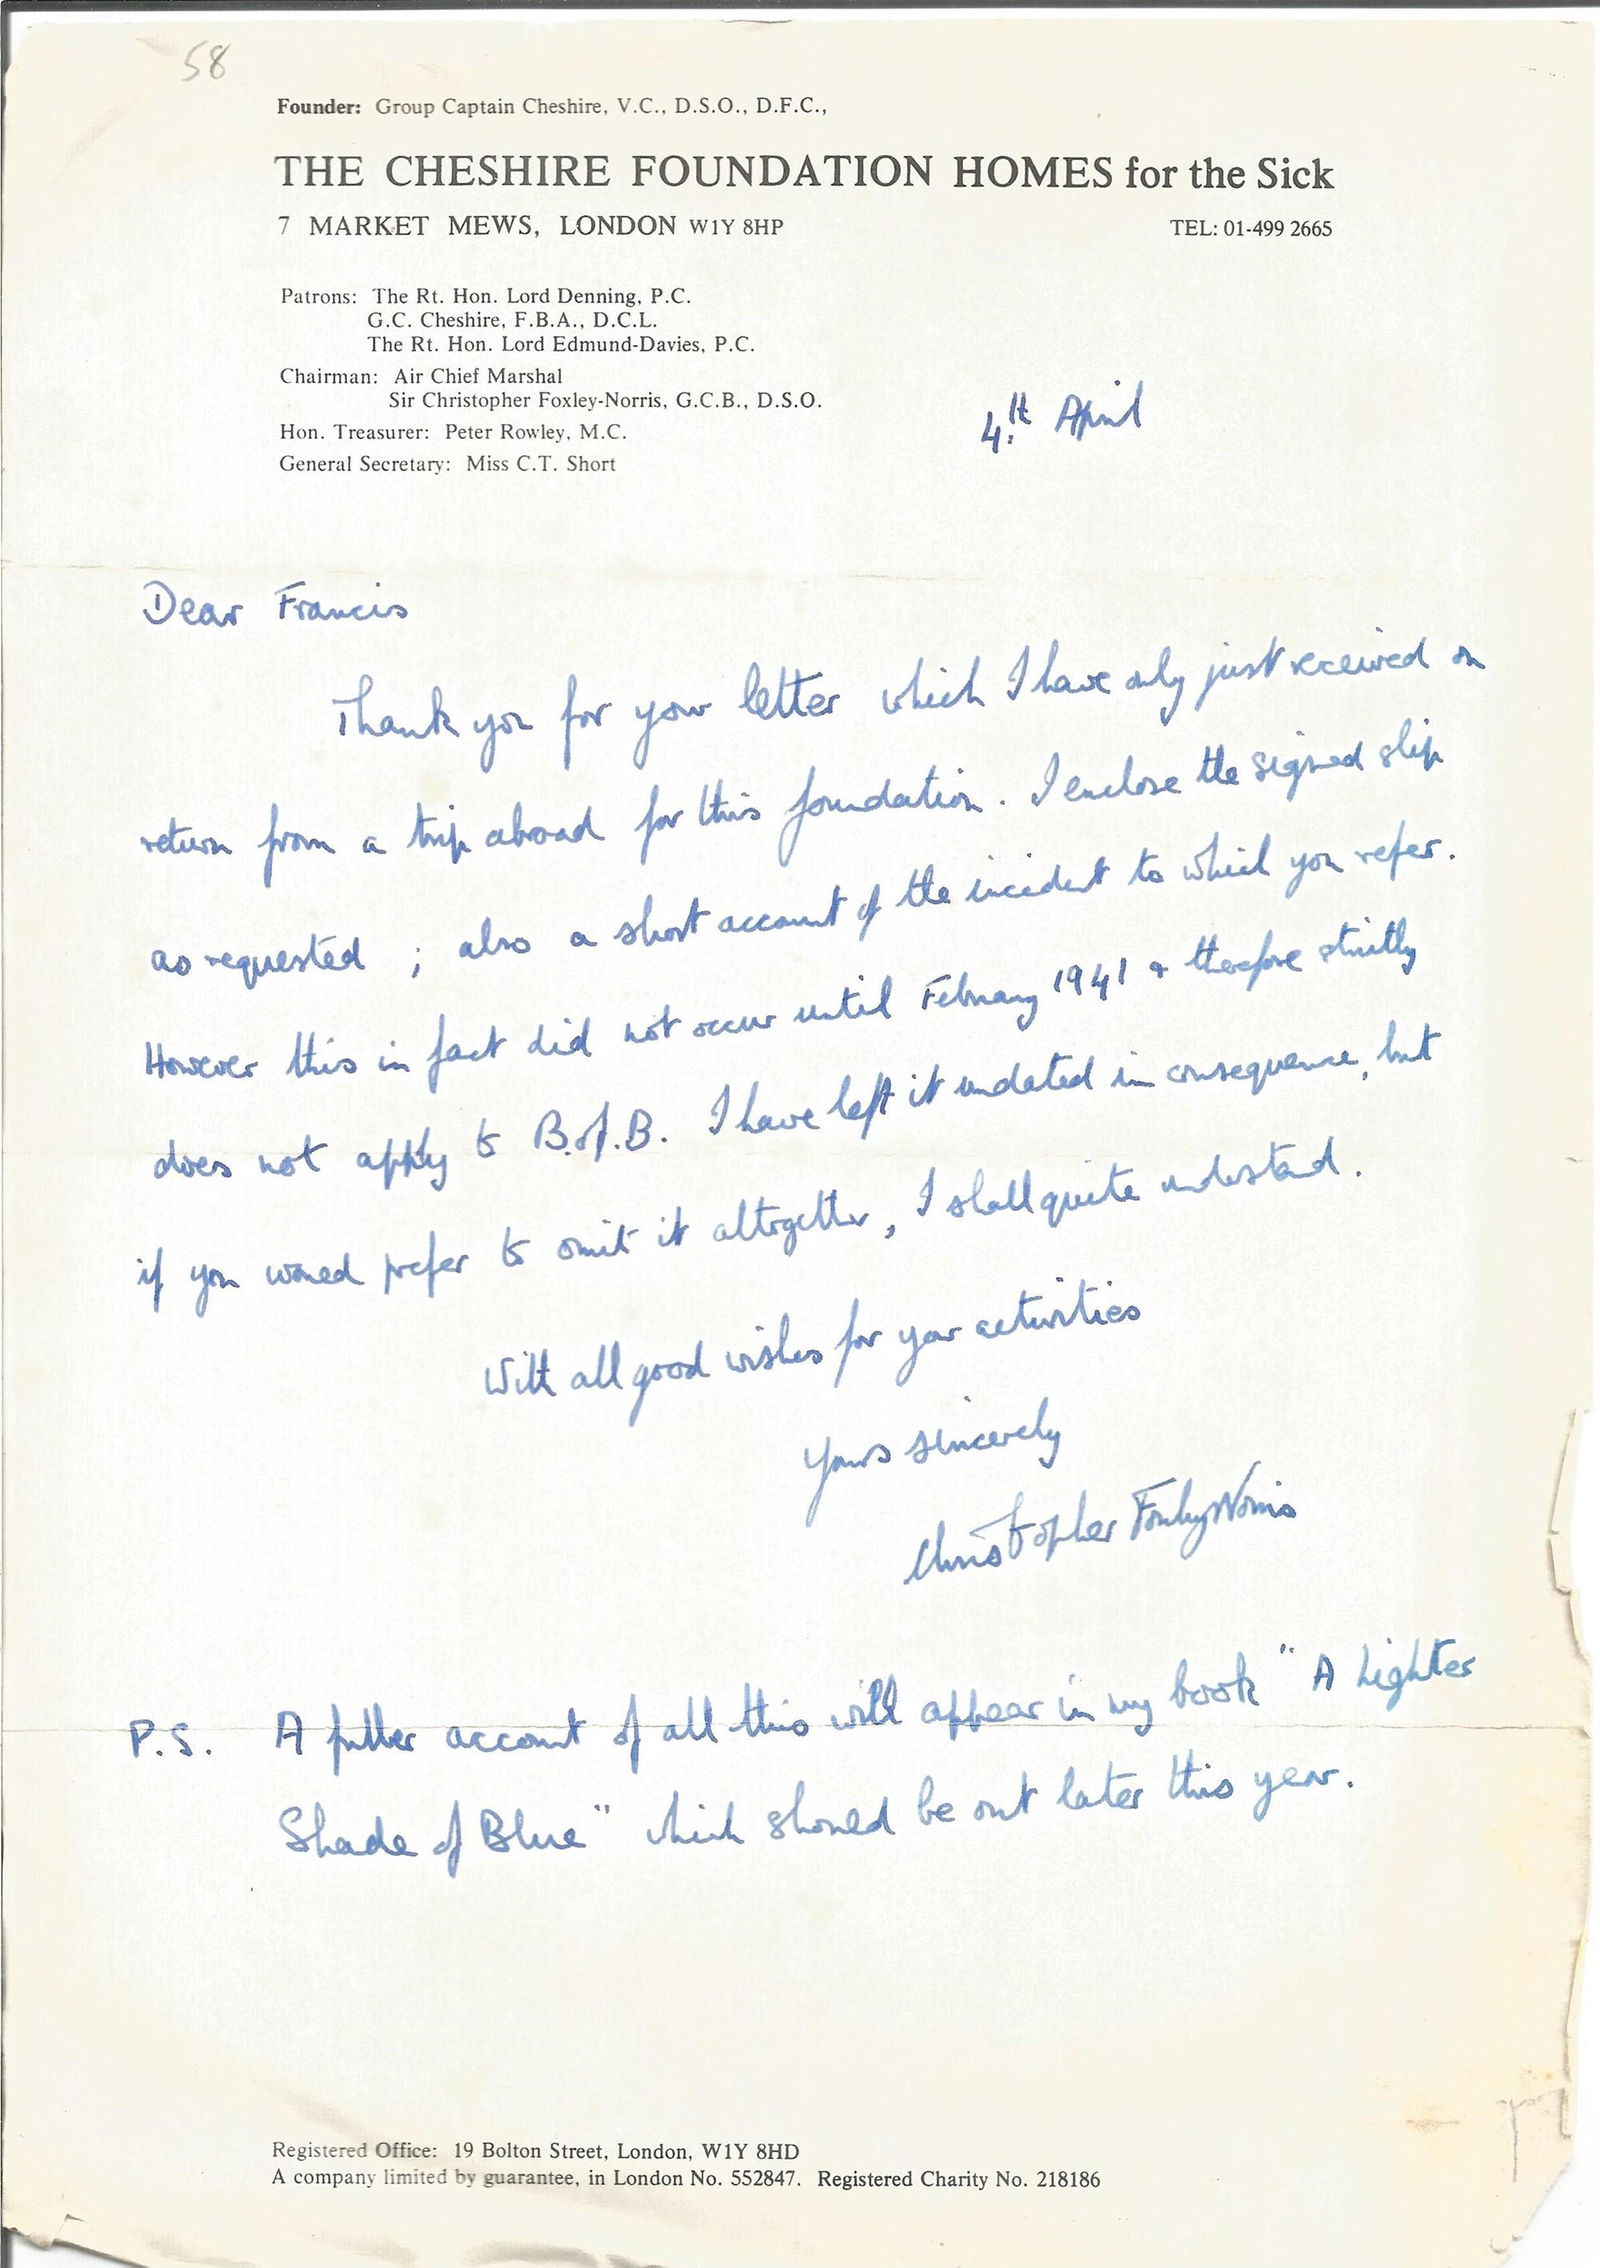 58
Founder: Group Captain Cheshire, V.C., D.S.O., D.F.C.,
THE CHESHIRE FOUNDATION HOMES for the Sick
7 MARKET MEWS, LONDON W1Y 8HP TEL: 01-499 2665
Patrons: The Rt. Hon. Lord Denning, P.C.
G.C. Cheshire, F.B.A., D.C.L.
The Rt. Hon. Lord Edmund-Davies, P.C.
Chairman: Air Chief Marshal
Sir Christopher Foxley-Norris, G.C.B., D.S.O.
Hon. Treasurer: Peter Rowley, M.C.
General Secretary: Miss C.T. Short
4th April
Dear Francis
Thank you for your letter which I have only just received on
return from a trip abroad for this foundation. I enclose the signed slip
as requested ; also a short account of the incident to which you refer.
However this in fact did not occur until February 1941 & therefore strictly
does not apply to B.of.B. I have left it undated in consequence, but
if you would prefer to omit it altogether, I shall quite understand.
With all good wishes for your activities
Yours sincerely
Christopher Foxley Norris
P.S. A fuller account of all this will appear in my book "A Lighter
Shade of Blue" which should be out later this year.
Registered Office: 19 Bolton Street, London, W1Y 8HD
A company limited by guarantee, in London No. 552847. Registered Charity No. 218186